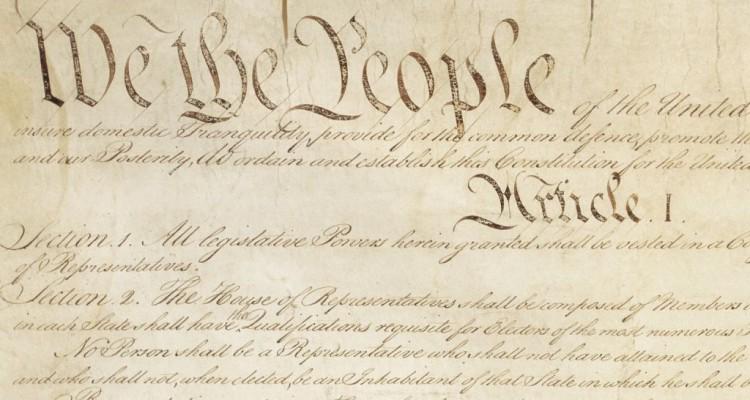 We the People of the United
insure domestic Tranquility, provide for the common defence, promote th
and our Posterity, do ordain and establish this Constitution for the United
Article. I.
Section. 1. All legislative Powers herein granted shall be vested in a Co
of Representatives.
Section. 2. The House of Representatives shall be composed of Members
in each State shall have the Qualifications requisite for Electors of the most numerous
No Person shall be a Representative who shall not have attained to the
and who shall not, when elected, be an Inhabitant of that State in which he shall